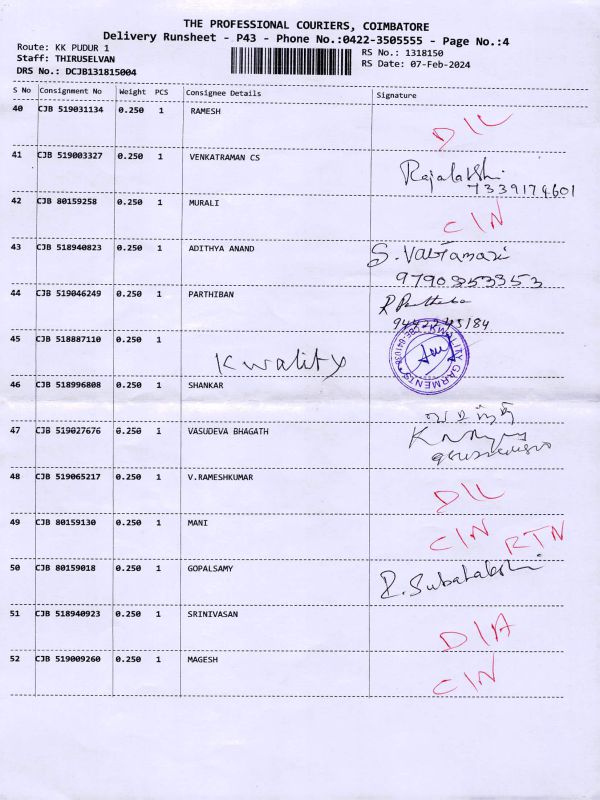 THE PROFESSIONAL COURIERS, COIMBATORE
Delivery Runsheet - P43 - Phone No.:0422-3505555 - Page No.:4
Route: KK PUDUR 1
RS No.: 1318150
Staff: THIRUSELVAN
RS Date: 07-Feb-2024
DRS No.: DCJB131815004
S No Consignment No Weight PCS Consignee Details Signature
40 CJB 519031134 0.250 1 RAMESH
D\L
41 CJB 519003327 0.250 1 VENKATRAMAN CS
7339174601
42 CJB 80159258 0.250 1 MURALI
C\N
43 CJB 518940823 0.250 1 ADITHYA ANAND
9790353353
44 CJB 519046249 0.250 1 PARTHIBAN
45 CJB 518887110 0.250 1
Kwality
KWALITY GARMENTS
46 CJB 518996808 0.250 1 SHANKAR
47 CJB 519027676 0.250 1 VASUDEVA BHAGATH
48 CJB 519065217 0.250 1 V.RAMESHKUMAR
D\L
49 CJB 80159130 0.250 1 MANI
C\N RTN
50 CJB 80159018 0.250 1 GOPALSAMY
51 CJB 518940923 0.250 1 SRINIVASAN
D\A
52 CJB 519009260 0.250 1 MAGESH
C\N